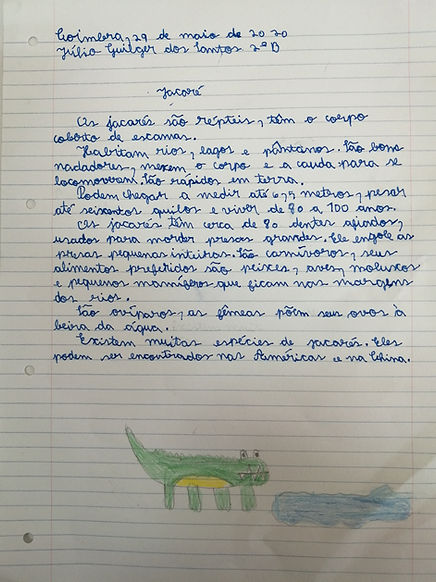 Coimbra, 29 de maio de 2020
Júlio Guilger dos Santos 2º B
Jacaré
Os jacarés são répteis, têm o corpo
coberto de escamas.
Habitam rios, lagos e pântanos. São bons
nadadores, mexem o corpo e a cauda para se
locomoverem. São rápidos em terra.
Podem chegar a medir até 6,5 metros, pesar
até seixentos quilos e viver de 80 a 100 anos.
Os jacarés têm cerca de 80 dentes afiados,
usados para morder presas grandes. Ele engole as
presas pequenas inteiras. São carnívoros, seus
alimentos preferidos são peixes, aves, moluscos
e pequenos mamíferos que ficam nas margens
dos rios.
São ovíparos, as fêmeas põem seus ovos à
beira da água.
Existem muitas espécies de jacarés. Eles
podem ser encontrados nas Américas e na China.